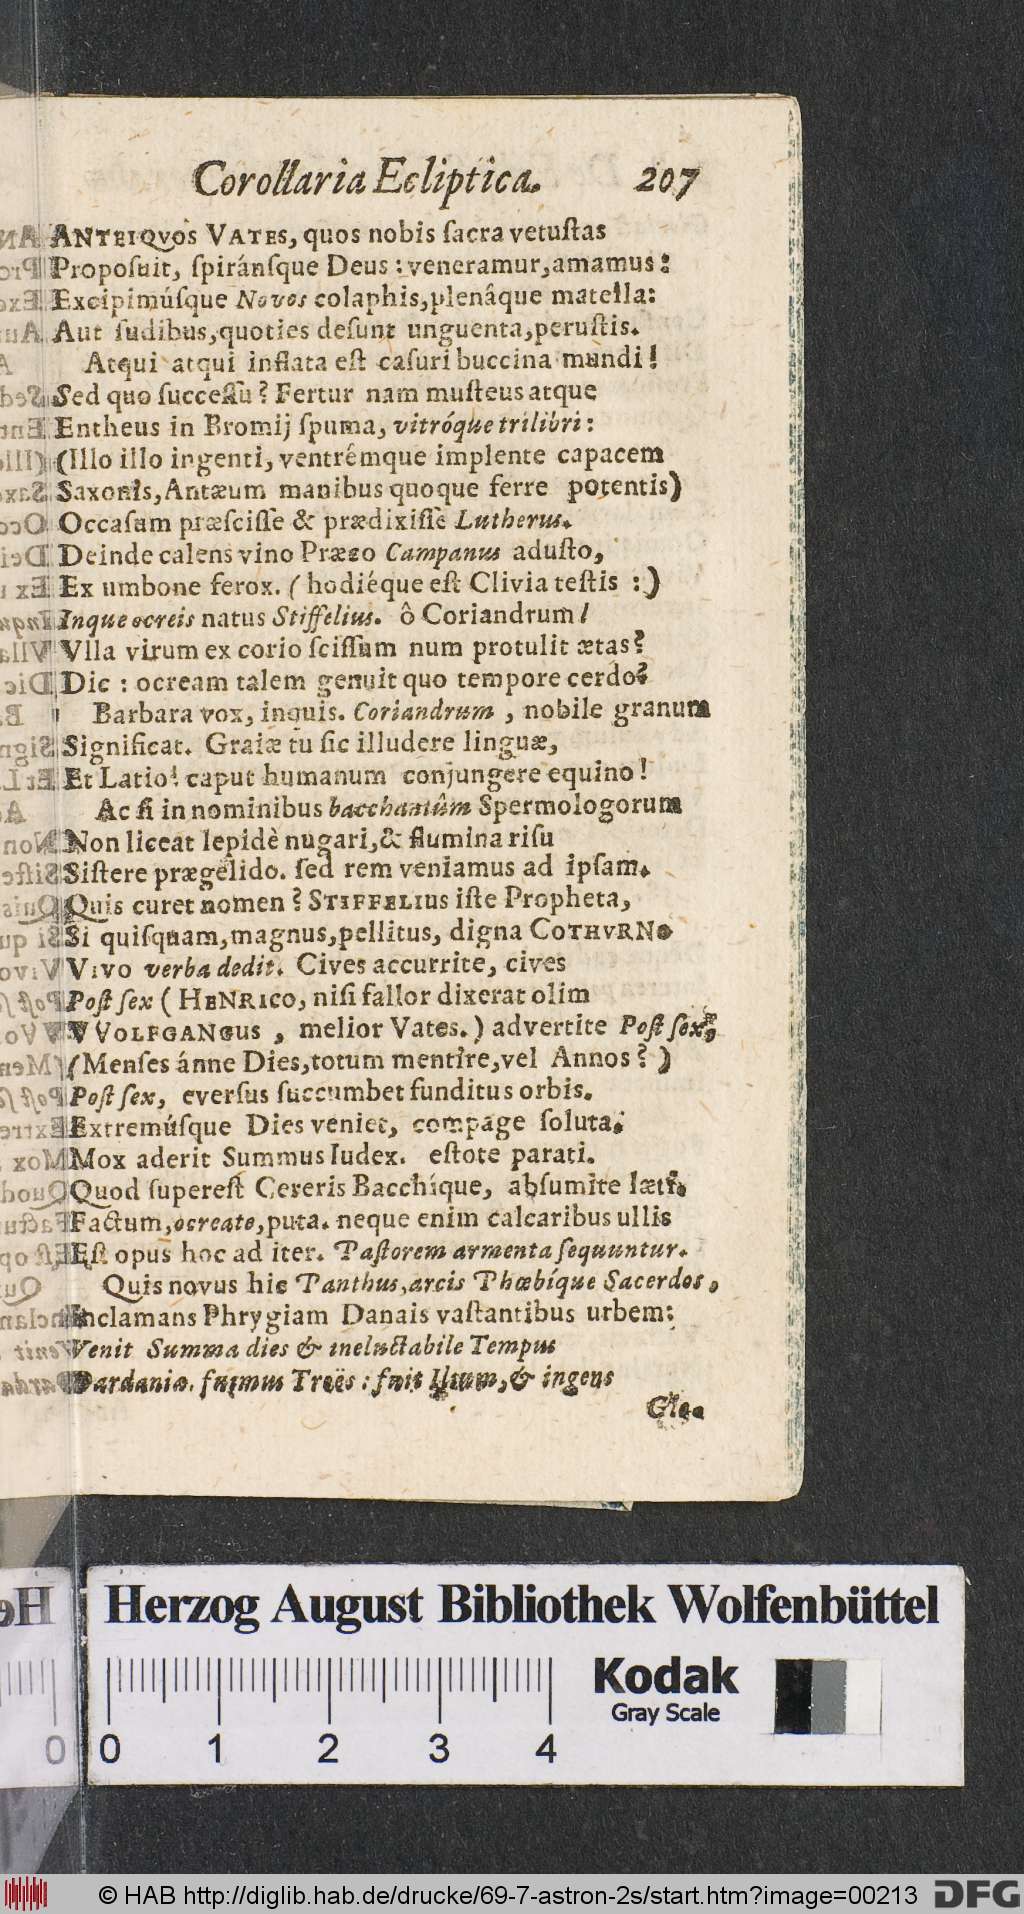 Corollaria Ecliptica. 207
ANTEIQVOS VATES, quos nobis ſacra vetuſtas
Propoſuit, ſpiránſque Deus : veneramur, amamus:
Excipimúſque Novos colaphis, plenâque matella:
Aut ſudibus, quoties deſunt unguenta, peruſtis.
Atqui atqui inflata eſt caſuri buccina mundi!
Sed quo ſucceſſu? Fertur nam muſteus atque
Entheus in Bromij ſpuma, vitróque trilibri:
(Illo illo ingenti, ventrémque implente capacem
Saxonis, Antæum manibus quoque ferre potentis)
Occaſum præſciſſe & prædixiſſe Lutherus.
Deinde calens vino Præco Campanus aduſto,
Ex umbone ferox. (hodiéque eſt Clivia teſtis :)
Inque ocreis natus Stiffelius. ô Coriandrum!
Vlla virum ex corio ſciſſum num protulit ætas?
Dic : ocream talem genuit quo tempore cerdo?
Barbara vox, inquis. Coriandrum, nobile granum
Significat. Graiæ tu ſic illudere linguæ,
Et Latio! caput humanum conjungere equino!
Ac ſi in nominibus bacchantûm Spermologorum
Non liceat lepidè nugari, & flumina riſu
Siſtere prægelido. ſed rem veniamus ad ipſam.
Quis curet nomen? STIFFELIus iſte Propheta,
Si quiſquam, magnus, pellitus, digna COTHVRNo
VIVO verba dedit. Cives accurrite, cives
Poſt ſex (HENRICO, niſi fallor dixerat olim
VVOLFGANGus, melior Vates.) advertite Poſt ſex,
(Menſes ánne Dies, totum mentîre, vel Annos?)
Poſt ſex, everſus ſuccumbet funditus orbis.
Extremúſque Dies veniet, compage ſoluta:
Mox aderit Summus Iudex. eſtote parati.
Quod ſupereſt Cereris Bacchíque, abſumite læti.
Factum, ocreate, puta. neque enim calcaribus ullis
Eſt opus hoc ad iter. Paſtorem armenta ſequuntur.
Quis novus hic Panthus, arcis Phœbíque Sacerdos,
Inclamans Phrygiam Danais vaſtantibus urbem:
Venit Summa dies & ineluctabile Tempus
Dardaniæ. fuimus Troës : fuit Ilium, & ingens
Glo-
Herzog August Bibliothek Wolfenbüttel
Kodak
Gray Scale
0 0 1 2 3 4
© HAB http://diglib.hab.de/drucke/69-7-astron-2s/start.htm?image=00213 DFG